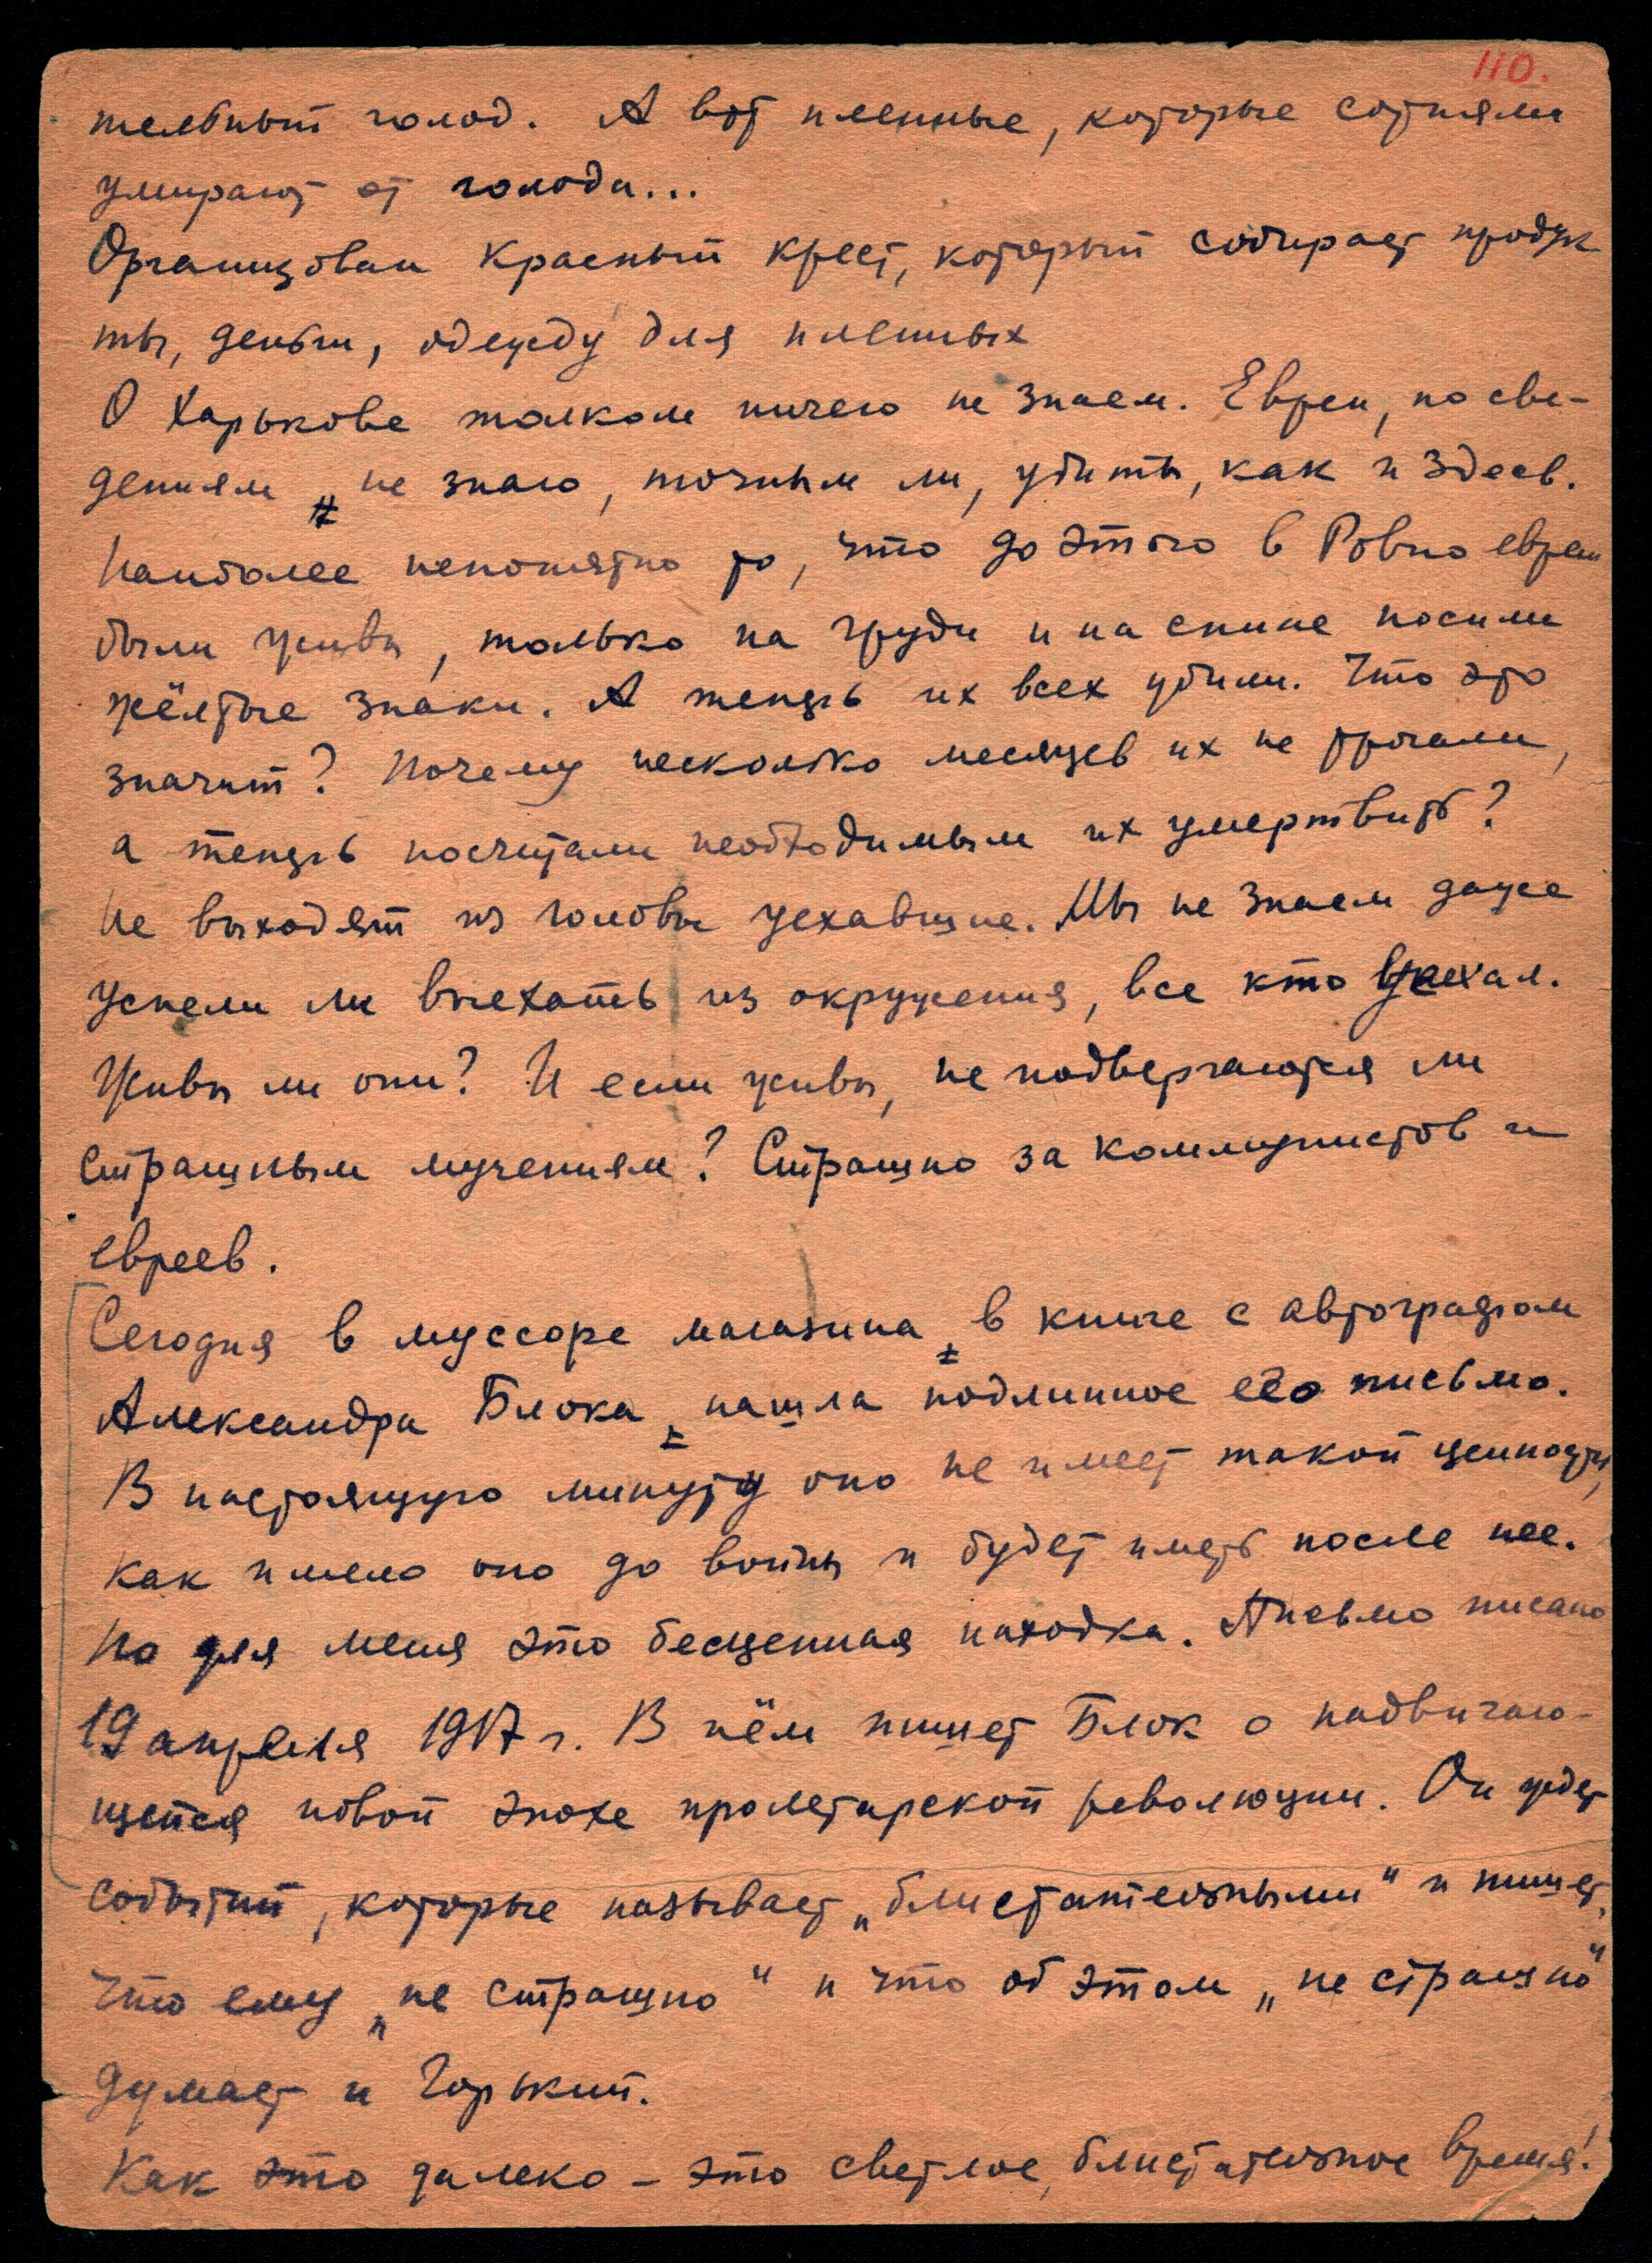 110.
тельный голод. А вот пленные, которые сотнями
умирают от голода...
Организован Красный крест, который собирает продук
ты, деньги, одежду для пленных
О Харькове толком ничего не знаем. Евреи, по све-
дениям, не знаю, точным ли, убиты, как и здесь.
Наиболее непонятно то, что до этого в Ровно евреи
были живы, только на груди и на спине носили
жёлтые знаки. А теперь их всех убили. Что это
значит? Почему несколько месяцев их не трогали,
а теперь посчитали необходимым их умертвить?
Не выходят из головы уехавшие. Мы не знаем даже
успели ли выехать из окружения, все кто уехал.
Живы ли они? И если живы, не подвергаются ли
страшным мучениям? Страшно за коммунистов и
евреев.
Сегодня в муссоре магазина, в книге с автографом
Александра Блока, нашла подлинное его письмо.
В настоящую минуту оно не имеет такой ценности,
как имело оно до войны и будет иметь после нее.
Но для меня это бесценная находка. Письмо писано
19 апреля 1917 г. В нём пишет Блок о надвигаю-
щейся новой эпохе пролетарской революции. Он ждет
событий, которые называет „блистательными" и пишет,
что ему „не страшно" и что об этом „не страшно"
думает и Горький.
Как это далеко - это светлое, блистательное время!